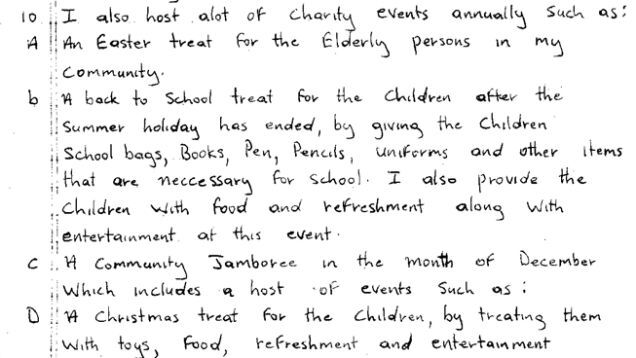 10 I also host alot of Charity events annually such as:
A An Easter treat for the Elderly persons in my
Community.
b A back to School treat for the Children after the
Summer holiday has ended, by giving the Children
School bags, Books, Pen, Pencils, uniforms and other items
that are neccessary for school. I also provide the
Children with food and refreshment along with
entertainment at this event.
C A Community Jamboree in the month of December
Which includes a host of events such as:
D A Christmas treat for the Children, by treating them
With toys, food, refreshment and entertainment